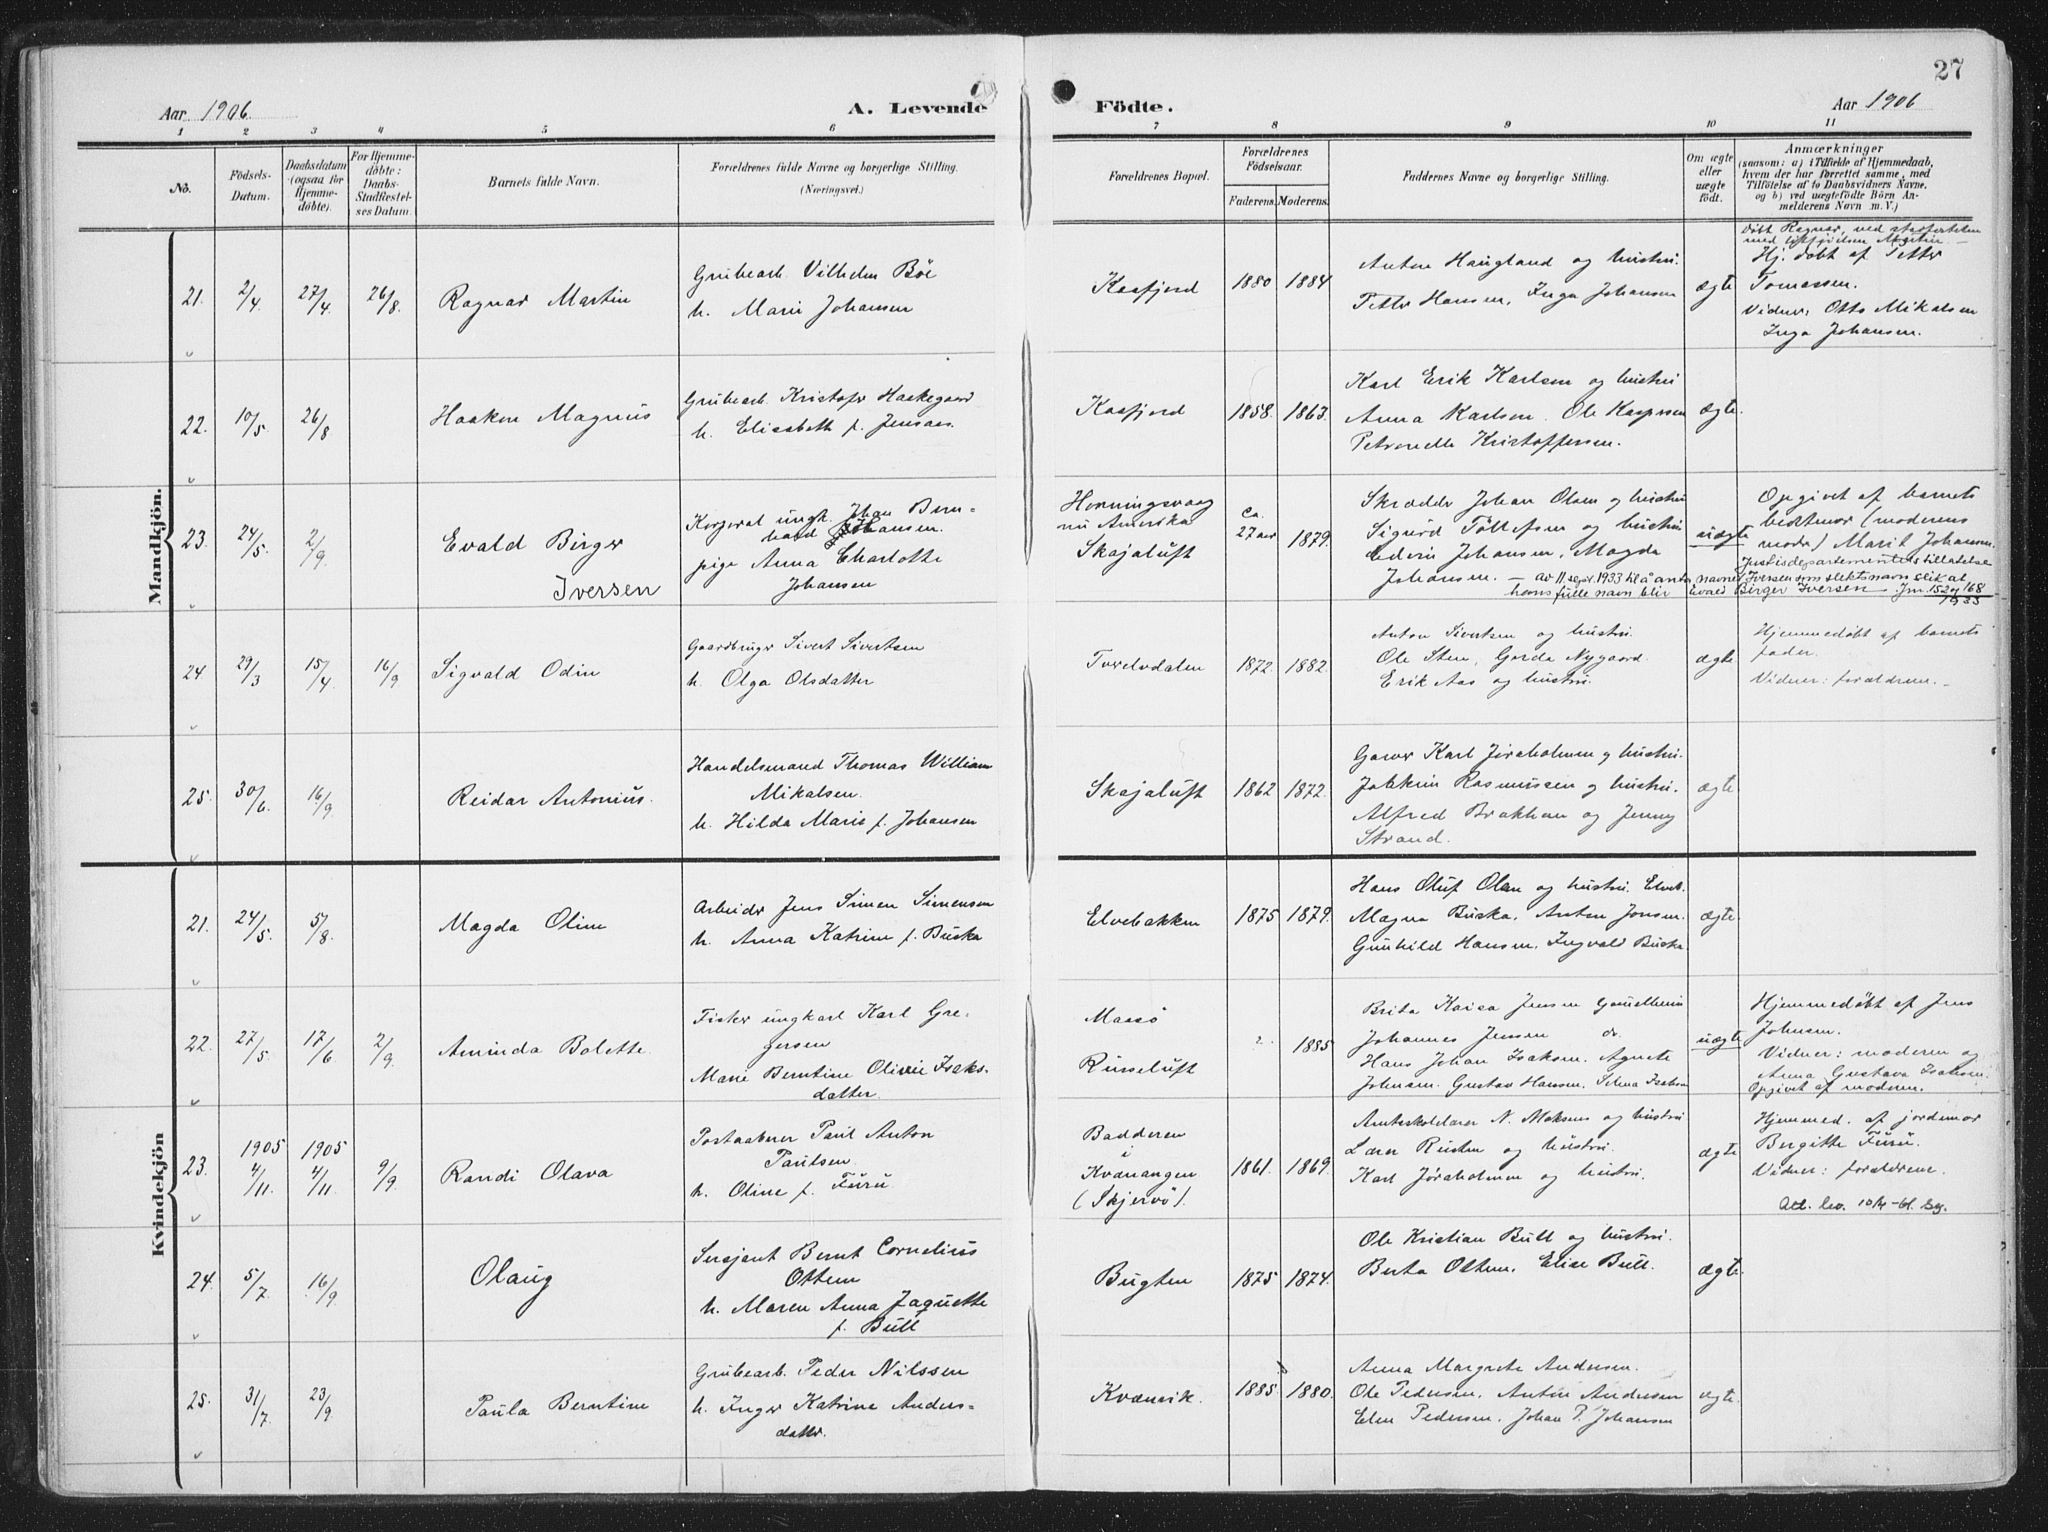 27
Aar 1906
A. Levende
Födte.
Aar 1906
1 2 3 4 5 6 7 8 9 10 11
No.
Födsels-Datum.
Daabsdatum (ogsaa for Hjemme-døbte).
For Hjemme-døbte: Daabs-Stadfæstel-ses Datum.
Barnets fulde Navn.
Forældrenes fulde Navne og borgerlige Stilling.
(Næringsvei.)
Forældrenes Bopæl.
Forældrenes Födselsaar.
Faderens. Moderens.
Faddernes Navne og borgerlige Stilling.
Om ægte eller uægte født.
Anmærkninger
(saasom: a) i Tilfælde af Hjemmedaab,
hvem der har forrettet samme, med
Tilføielse af to Daabsvidners Navne,
og b) ved uægtefödte Börn An-
melderens Navn m. V.)
Mandkjön.
21. 2/4 27/4 26/8. Ragnar Martin
Grubearb. Vilhelm Böe
h. Marie Johansen
Kaafjord 1880 1884
Anton Haugland og hustru.
Petter Hansen, Inga Johansen
ægte
Døbt Ragnar, ved stadfæstelsen
med tilføielsen Martin. –
Hj. døbt af Petter
Tomassen.
Vidner: Otto Mikalsen
Inga Johansen.
22. 10/5 26/8 Haakon Magnus
Grubearb. Kristofer
h. Elisabeth f. Jensen.
Kaafjord 1858. 1863.
Karl Erik Karlsen og hustru
Anna Karlsen. Ole Kaspersen
Petronelle Kristoffersen.
ægte.
23. 24/5. 2/9 Evald Birger
Iversen
ungk. Johan Bern-
hard Johansen.
pige Anna Charlotte
Johansen
Honningsvaag
nu Amerika
Skajaluft
ca. 27 aar 1879.
Skrædder Johan Olsen og hustru
Sigurd Tollefsen og hustru
Edvin Johansen, Magda
Johansen.
uægte
Opgivet af barnets
bestemor (moderens
moder) Marit Johansen.
Justisdepartementets tillatelse
– av 11 sept. 1933 til å anta navnet Iversen som slektsnavn slik at
hans fulle navn blir Evald Birger Iversen. Jnr. 152 og 168
1933
24. 29/3 15/4 16/9 Sigvald Odin
Gaardbruger Sivert Sivertsen
h. Olga Olsdatter
Tverelvdalen 1872. 1882.
Anton Sivertsen og hustru.
Ole Sten, Gerda Nygaard.
Erik Aas og hustru.
ægte
Hjemmedøbt af barnets
fader.
Vidner: forældrene. –
25. 30/6 16/9. Reidar Antonius.
Handelsmand Thomas William
Mikalsen.
h. Hilda Marie f. Johansen
Skajaluft 1862 1872.
Garver Karl Jöraholmen og hustru.
Joakim Rasmussen og hustru.
Alfred Brakhan og Jenny
Strand.
ægte.
Kvindekjön
21. 24/5. 5/8. Magda Oline
Arbeider Jens Simen Simensen
h. Anna Katrine f. Buska
Elvebakken 1875 1879.
Hans Oluf Olsen og hustru. Elveb.
Magna Buska. Anton Jensen.
Gunhild Hansen, Ingvald Buska
ægte.
22. 27/5. 17/6 2/9 Aminda Bolette.
Fisker ungkarl Karl Gre-
gersen
Marie Berntine Olivie Isaks-
datter.
Maasö
Russeluft
? 1885
Brita Kaisa Jensen
Johannes Jensen do.
Hans Johan Isaksen, Agnete
Johnsen. Gustav Hansen, Selma Isaksen
uægte
Hjemmedøbt af Jens
Johnsen.
Vidner: moderen og
Anna Gustava Isaksen.
Opgivet af moderen.
23. 1905 4/11. 1905 4/11. 9/9. Randi Olava
Postaabner Paul Anton
Paulsen.
h. Oline f. Furu.
Badderen
i
Kvænangen
(Skjervö).
1861. 1869.
Amtsskolelærer N. Moksnes og hustru
Lærer Rusten og hustru.
Karl Jöraholmen og hustru.
ægte
Hjemmed. af jordmor
Bergitte Furu.
Vidner: forældrene.
24. 5/7. 16/9. Olaug
Sersjant Bernt Cornelius
Ottem
h. Maren Anna Jaquette
f. Bull
Bugten 1875 1874.
Ole Kristian Bull og hustru.
Berta Ottem, Elise Bull.
ægte.
25. 31/7. 23/9. Paula Berntine
Grubearb. Peder Nilssen
h. Inger Katrine Anders-
datter.
Kvænvik. 1885 1880.
Anna Margrete Andersen.
Ole Pedersen, Anton Andersen
Elen Pedersen, Johan P. Johansen
ægte.